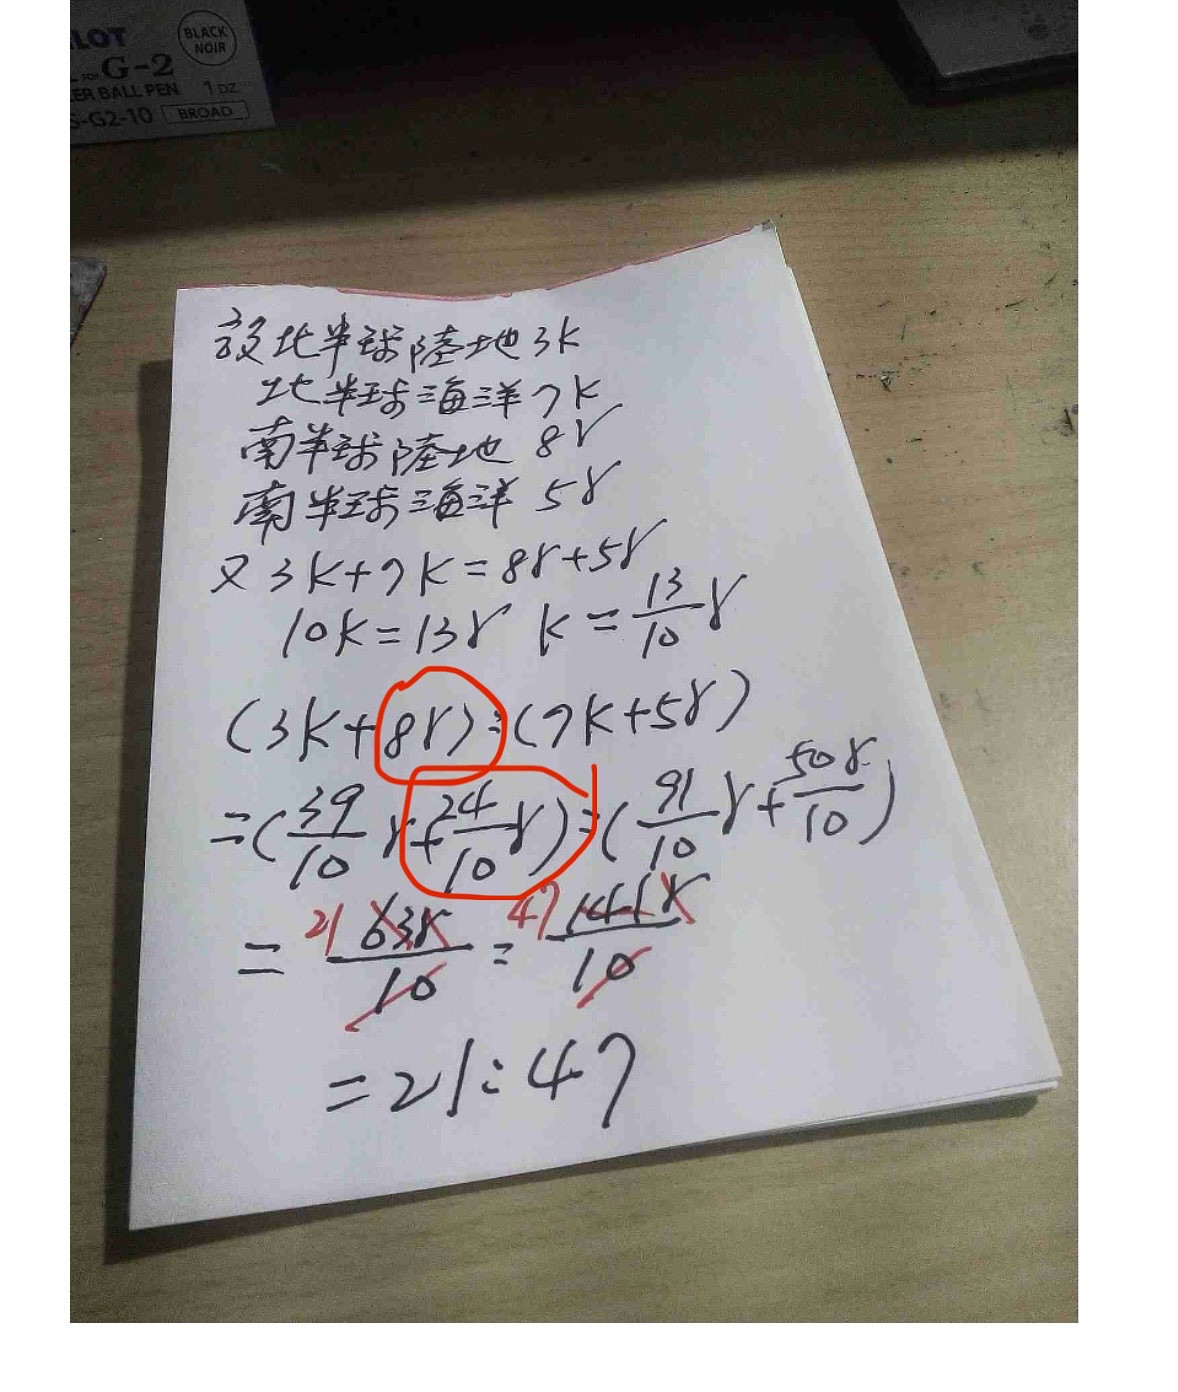 LOT
BLACK
NOIR
G-2
ER BALL PEN 1 DZ
G2-10 BROAD
設北半球陸地3k
北半球海洋7k
南半球陸地 8r
南半球海洋 5r
又3k+7k=8r+5r
10k=13r k=13/10 r
(3k+8r):(7k+5r)
=(39/10 r+24/10 r):(91/10 r+50r/10)
=21 63r/10 : 47 141r/10
=21:47